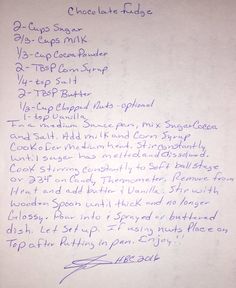 Chocolate fudge
2-Cups Sugar
2/3-Cups Milk
1/3-Cup Cocoa Powder
2-TBSP Corn Syrup
1/4-tsp Salt
2-TBSP Butter
1/3-Cup Chopped Nuts-optional
1-tsp Vanilla
In a medium Sauce pan, mix Sugar Cocoa
and Salt. Add milk and Corn Syrup
Cook over Medium heat. Stir constantly
until sugar has melted and dissolved.
Cook stirring constantly to Soft ball stage
or 234° on Candy Thermometer. Remove from
Heat and add butter & Vanilla. Stir with
Wooden Spoon until thick and no longer
Glossy. Pour into a Sprayed or buttered
dish. Let Set up. If using nuts Place on
Top after Putting in pan. Enjoy!!
HBC 2016